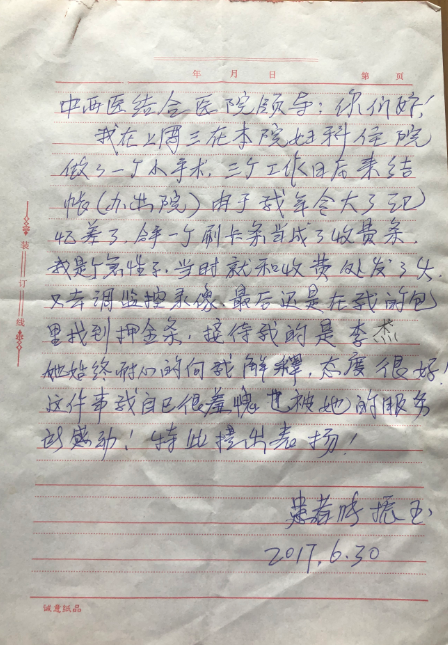 年 月 日 第 页
中西医结合医院领导：你们好！
我在上周三在本院妇科住院
做了一个小手术，三个工作日后来结
帐（办出院）由于我年令大了记
忆差了，合拿一个刷卡条当成了收费条，
我是个急性子，当时就和收费处发了火
又去调监控录像，最后还是在我的包
里找到押金条，接待我的是李杰
她始终耐心的向我解释，态度很好！
这件事我自己很羞愧也被她的服务
所感动！特此提出表扬！
患者 振玉
2017.6.30
装订线
诚意纸品